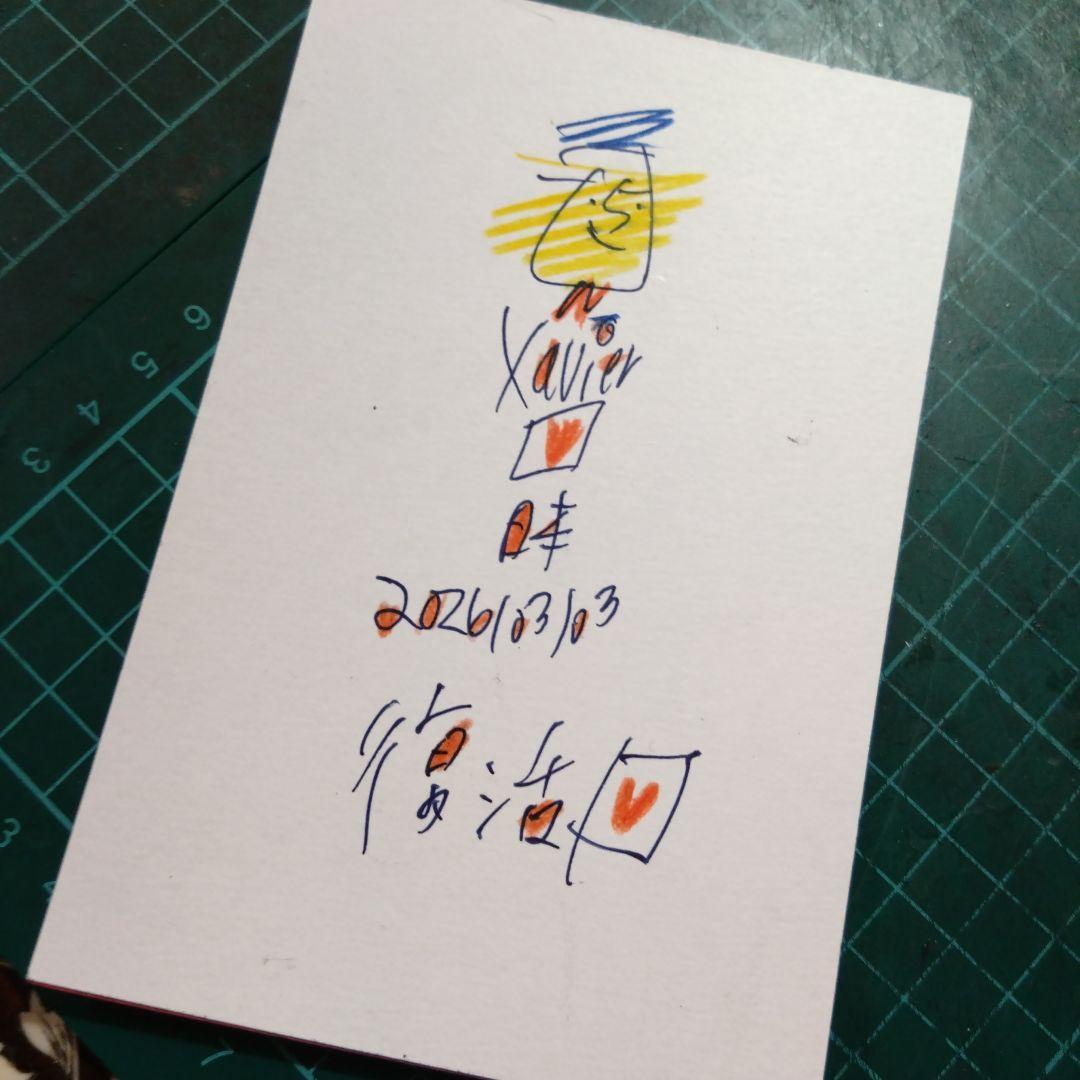 Xavier
2026/03/03
復活
6
5
4
3
3